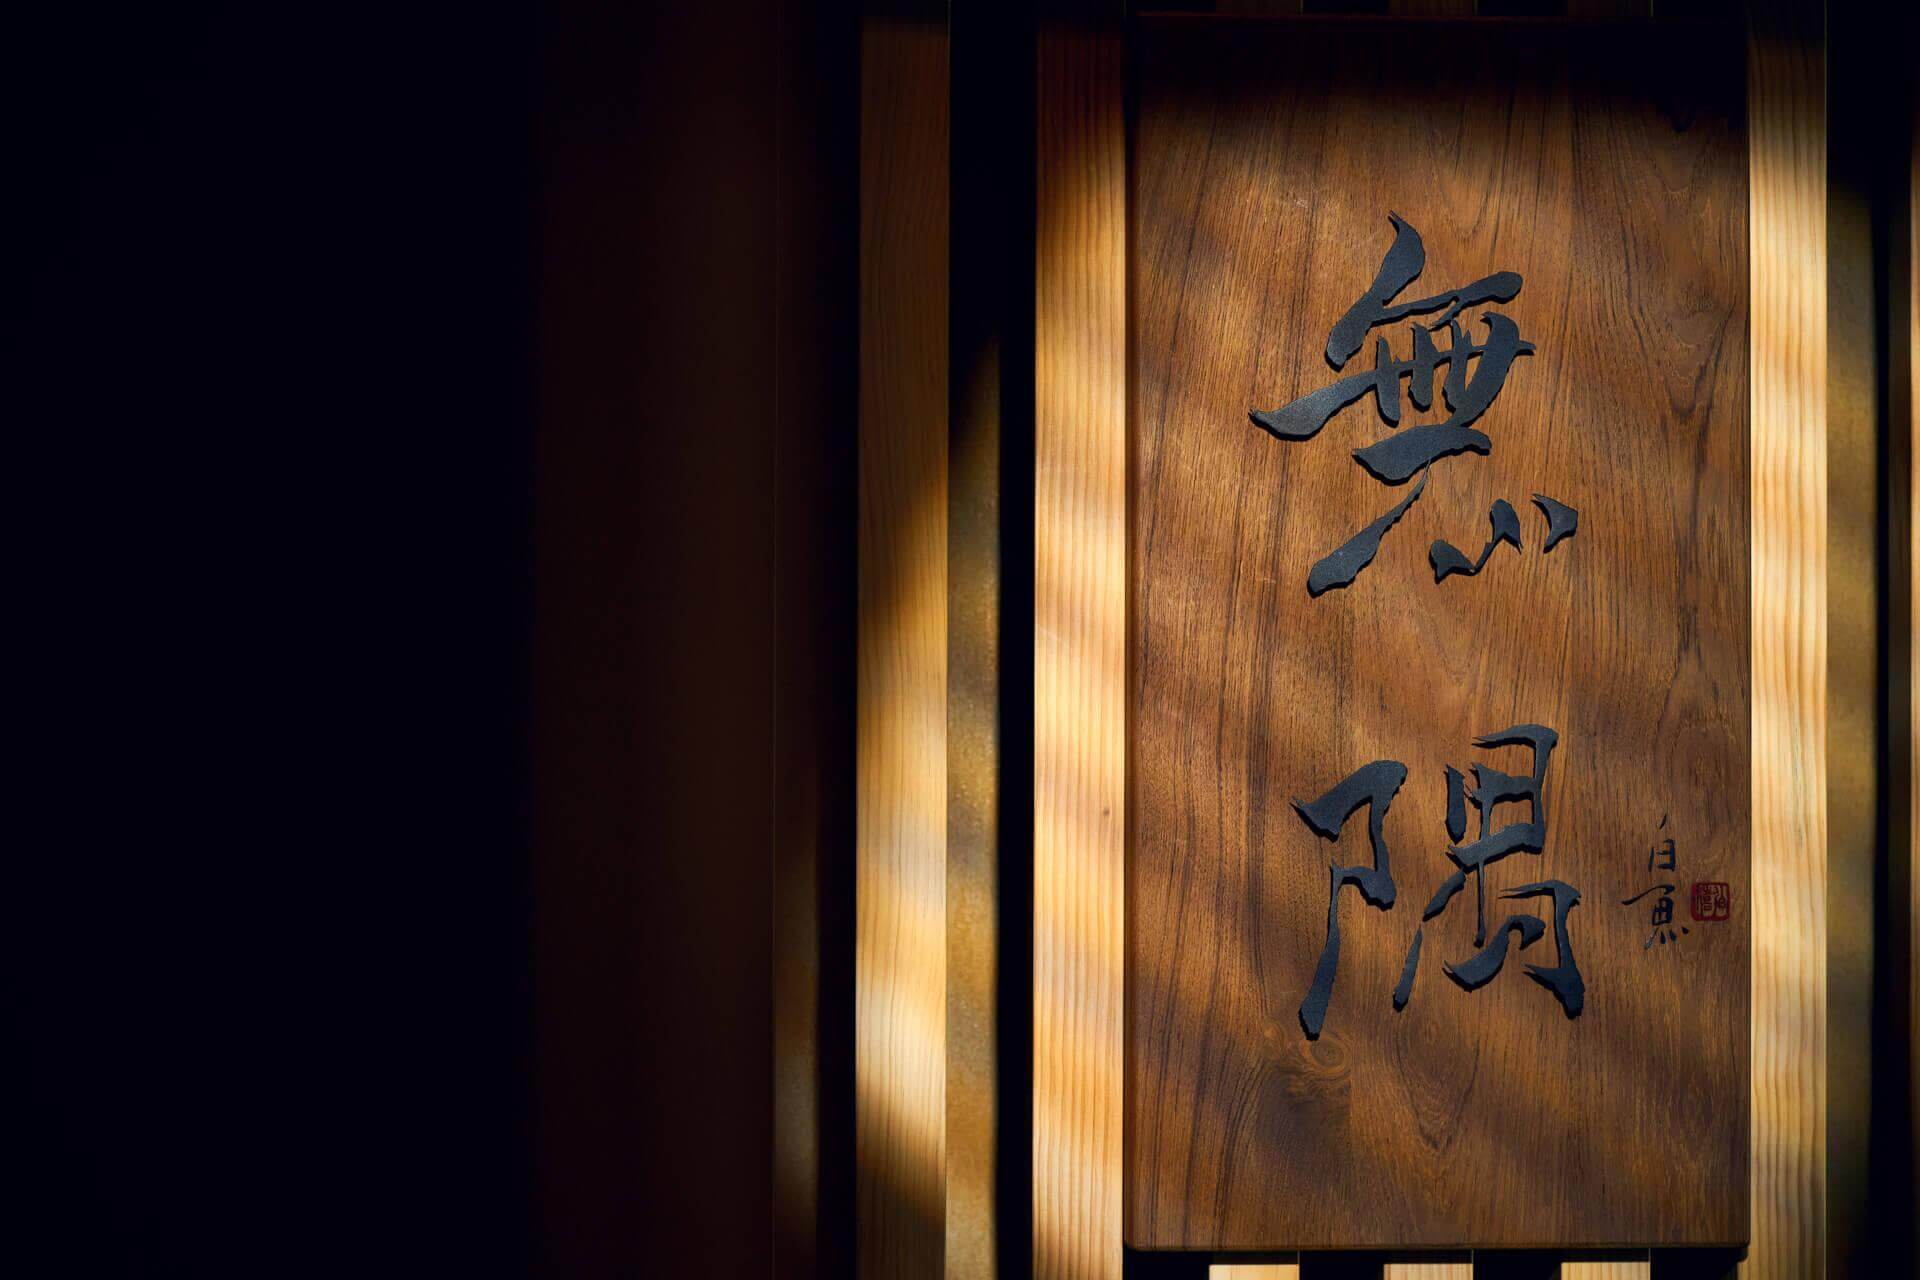 無隅
白魚